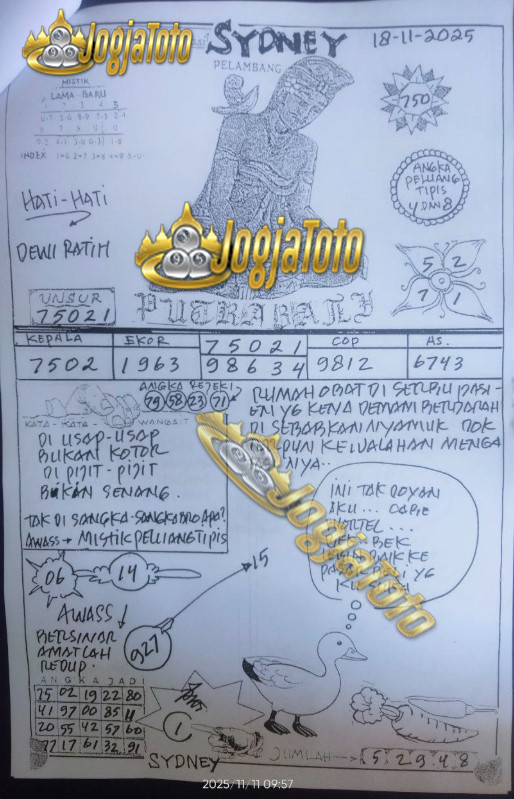 JogjaToto
SYDNEY
18-11-2025
PELAMBANG
MISTIK
LAMA BARU
INDEX
750
ANGKA
PELUANG
TIPIS
4 DAN 8
HATI-HATI
DEWI RATIH
JogjaToto
5 2
7 1
UNSUR
75021
PUTRA BALI
KEPALA EKOR 75021 COP AS.
7502 1963 98634 9812 6743
ANGKA REJEKI
79 58 23 71
KATA - KATA - WANGSIT
DI USAP-USAP
BUKAN KOTOR
DI PIJIT - PIJIT
BUKAN SENANG.
TAK DI SANGKA-SANGKA BRO APA?
AWASS → MISTIK PELUANG TIPIS
RUMAH OBAT DI SERBU PASI-
EN YG KENA DEMAM BERDARAH
DI SEBABKAN NYAMUK DOK
KEWALAHAN MENGA
NYA..
JogjaToto
INI TAK DOYAN
AKU... CABE
WORTEL...
BEK
YG
06
14
15
AWASS
927
BERSINAR
AMATLAH
REDUP.
ANGKA JADI
75 02 19 22 80
41 97 00 85 11
20 55 42 57 60
77 17 61 32 91
1
SYDNEY
JUMLAH → 5 2 9 4 8
2025/11/11 09:57